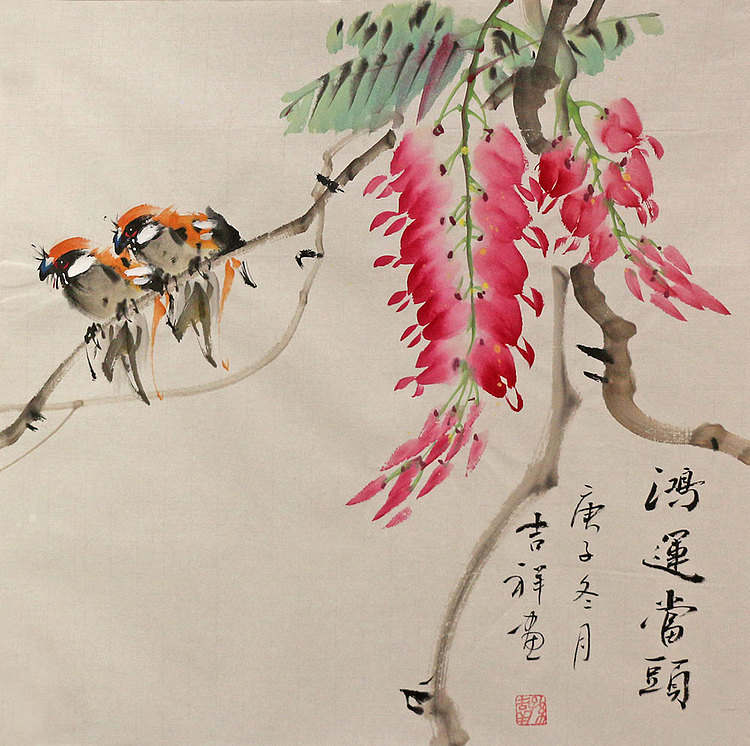 鴻運當頭
庚子冬月
吉祥画